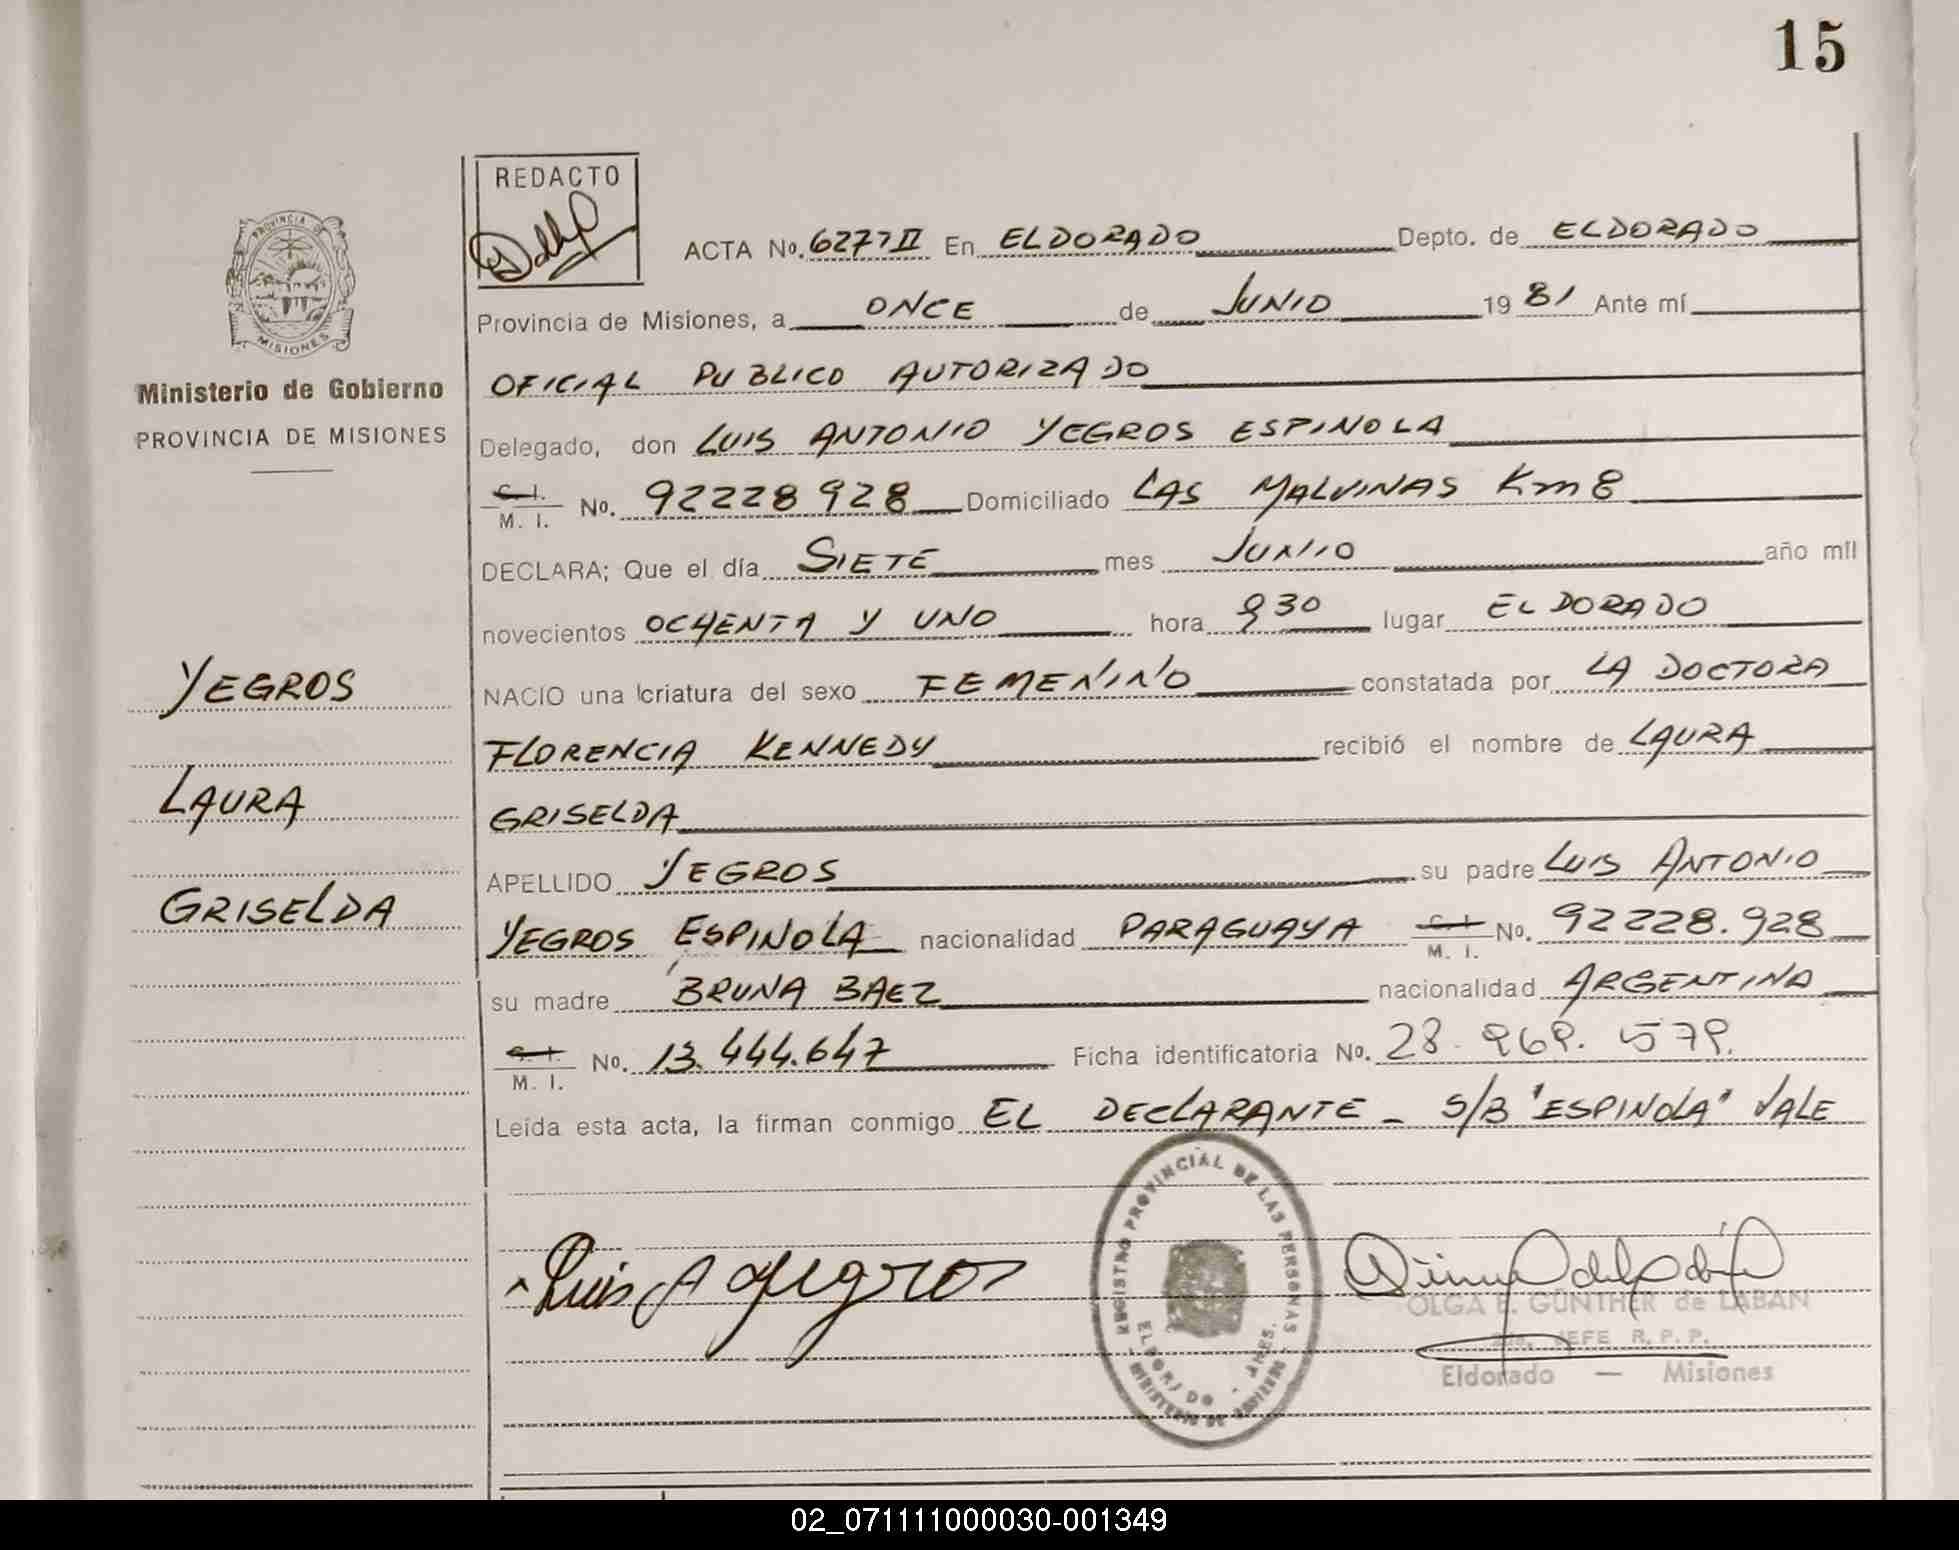 15
REDACTO
PROVINCIA DE
MISIONES
Ministerio de Gobierno
PROVINCIA DE MISIONES
YEGROS
LAURA
GRISELDA
ACTA No. 6277 II En ELDORADO Depto. de ELDORADO
Provincia de Misiones, a ONCE de JUNIO 1981 Ante mí
OFICIAL PUBLICO AUTORIZADO
Delegado, don LUIS ANTONIO YEGROS ESPINOLA
C. I. M. I. No. 92228928 Domiciliado LAS MALVINAS Km 8
DECLARA; Que el día SIETE mes JUNIO año mil
novecientos OCHENTA Y UNO hora 930 lugar ELDORADO
NACIO una criatura del sexo FEMENINO constatada por LA DOCTORA
FLORENCIA KENNEDY recibió el nombre de LAURA
GRISELDA
APELLIDO YEGROS su padre LUIS ANTONIO
YEGROS ESPINOLA nacionalidad PARAGUAYA C. I. M. I. No. 92228.928
su madre BRUNA BAEZ nacionalidad ARGENTINA
C. I. M. I. No. 13.444.647 Ficha identificatoria No. 28.969.579.
Leída esta acta, la firman conmigo EL DECLARANTE - S/B "ESPINOLA" VALE
Luis A Yegros
REGISTRO PROVINCIAL DE LAS PERSONAS
ELDORADO - MNES.
OLGA E. GÜNTHER de LABAN
JEFE R. P. P.
Eldorado — Misiones
02_071111000030-001349